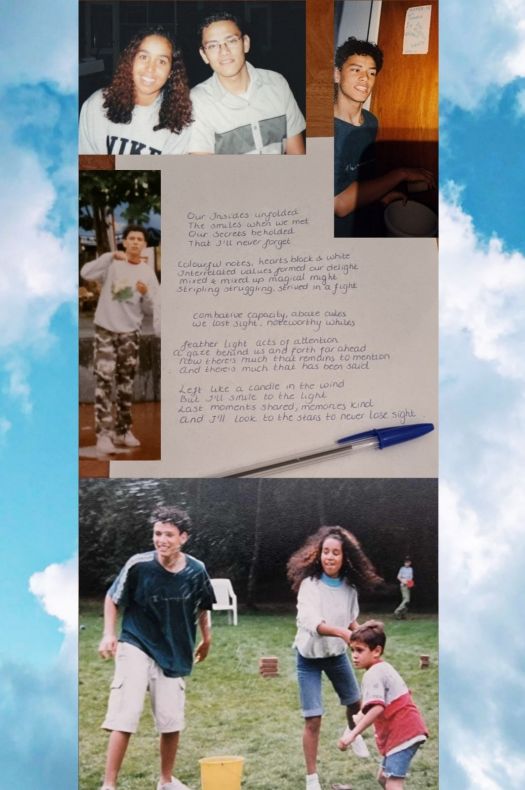 NIKE
Our Insides unfolded
The smiles when we met
Our Secrets beholded
That I'll never forget
Colourful notes, hearts black & white
Interrelated values formed our delight
Mixed & mixed up magical might
Stripling struggling, strived in a fight
Combative capacity, abate cutes
We lost sight, noteworthy whites
Feather light acts of attention
A gaze behind us and forth far ahead
Now there's much that remains to mention
And there's much that has been said
Left like a candle in the wind
But I'll smile to the light
Last moments shared, memories kind
And I'll look to the stars to never lose sight.